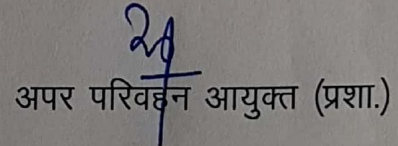 अपर परिवहन आयुक्त (प्रशा.)